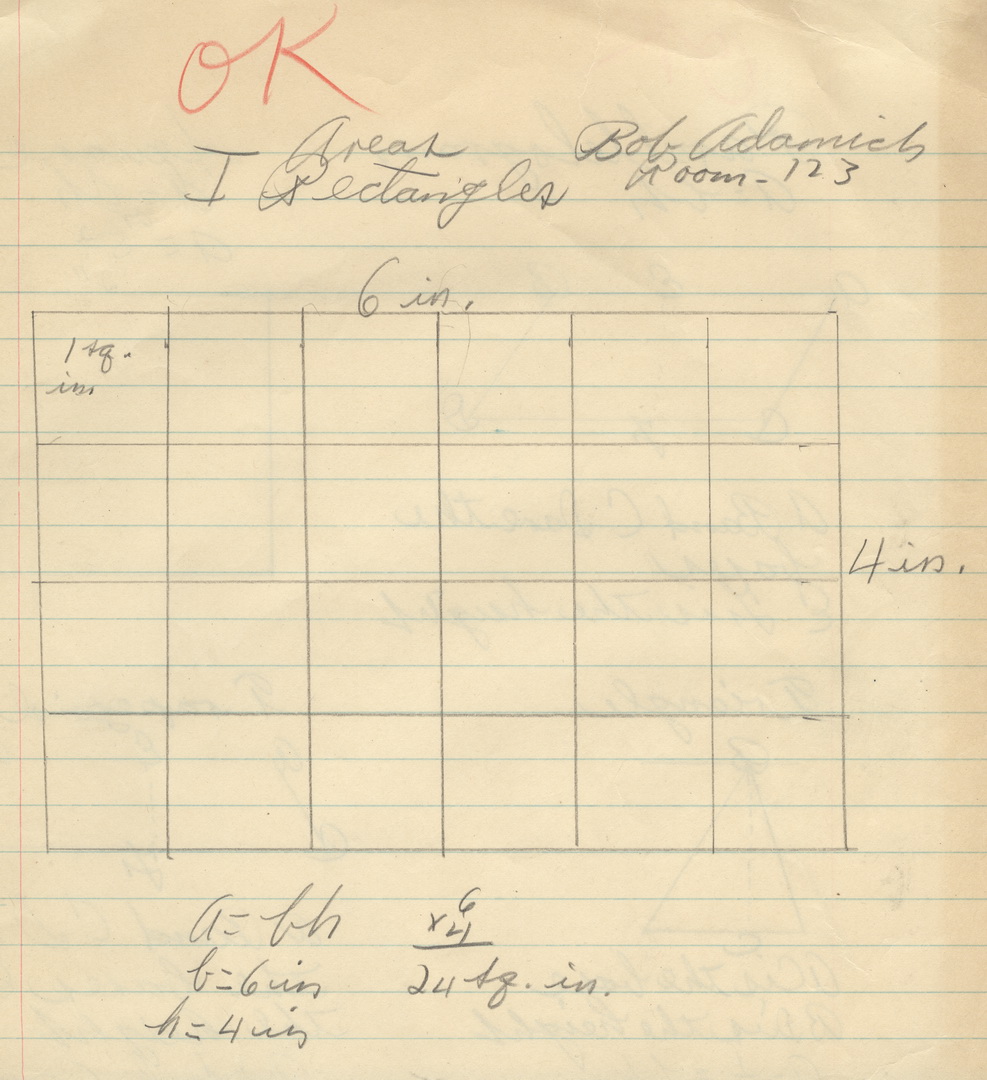 OK
Areas
I Rectangles
Bob Adamich
Room - 123
6 in.
1 sq.
in
4 in.
A = bh
b = 6 in
h = 4 in
6
x 4
24 sq. in.